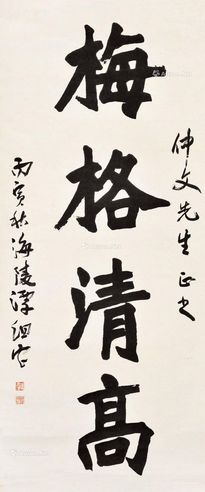 仲文先生正之
梅格清高
丙寅秋海陵潭组安